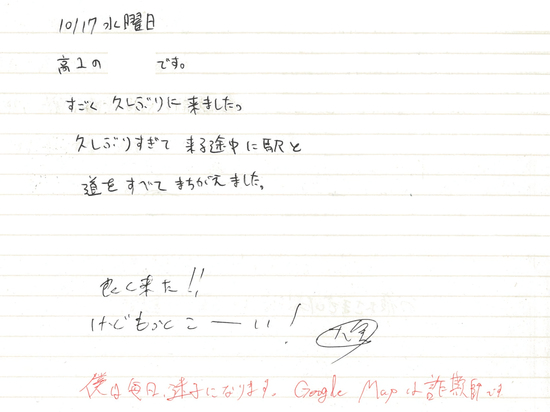 10/17 水曜日
高1の です。
すごく 久しぶりに 来ましたっ
久しぶりすぎて 来る途中に駅と
道を すべて まちがえました。
よく来た!!
けどもっとこーい!
僕は毎日、迷子になります。Google Mapは詐欺師です